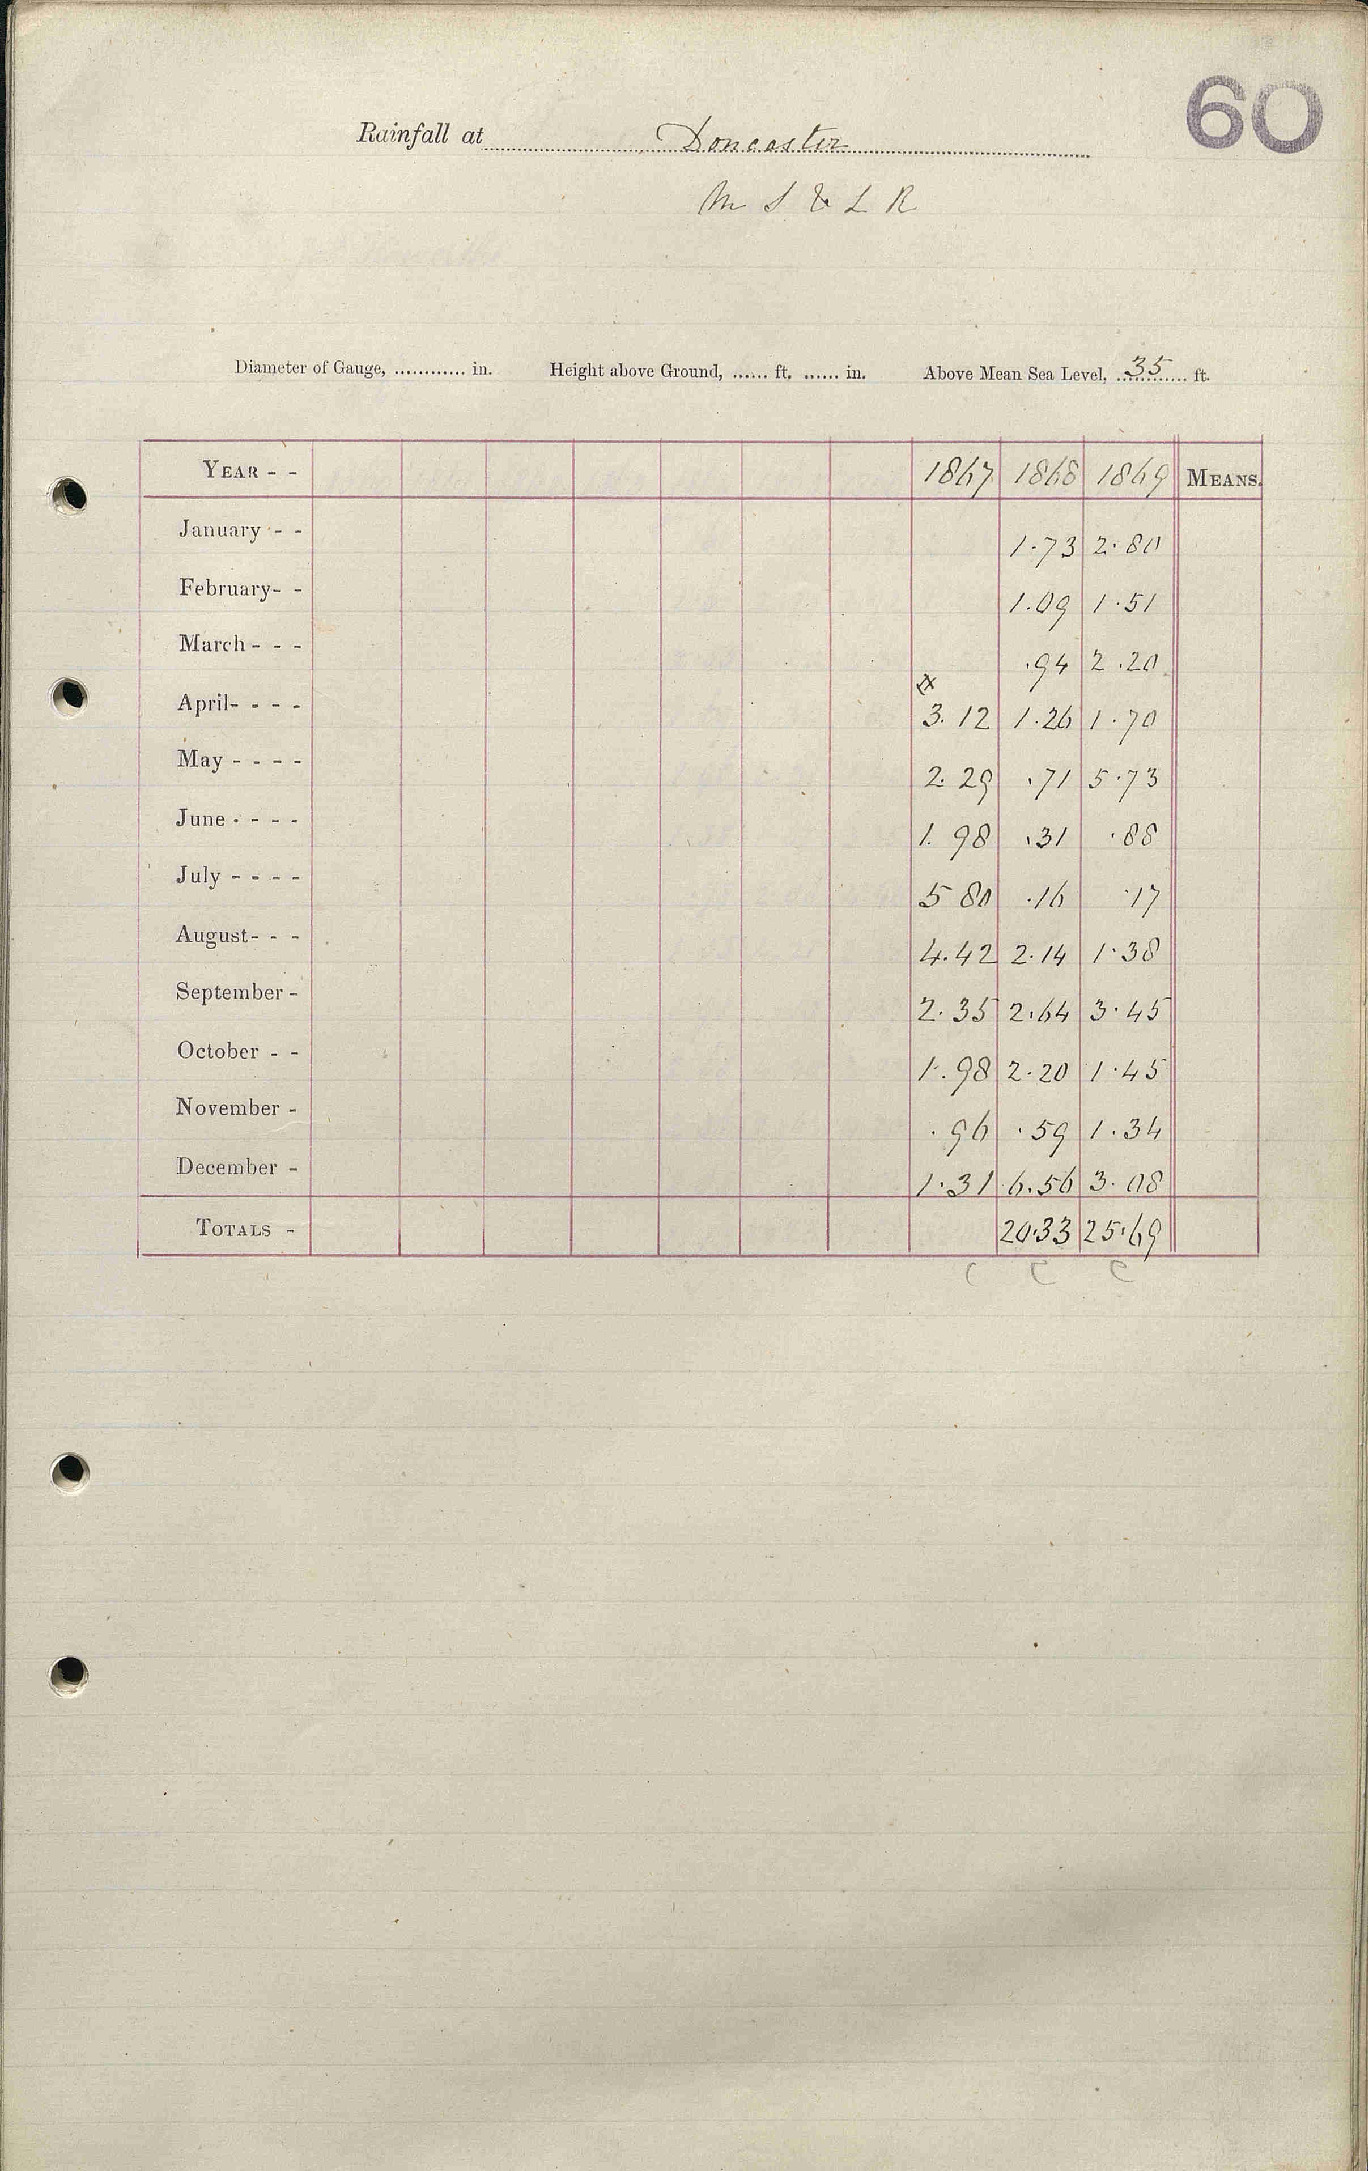 60
Rainfall at Doncaster
M S & L R
Diameter of Gauge, ............ in. Height above Ground, ...... ft. ...... in. Above Mean Sea Level, 35 ft.
YEAR - - 1867 1868 1869 MEANS.
January - - 1.73 2.80
February - - 1.09 1.51
March - - - .94 2.20
April - - - - 3.12 1.26 1.70
May - - - - 2.29 .71 5.73
June - - - - 1.98 .31 .88
July - - - - 5 80 .16 .17
August - - - 4.42 2.14 1.38
September - 2.35 2.64 3.45
October - - 1.98 2.20 1.45
November - .96 .59 1.34
December - 1.31 6.56 3.08
TOTALS - 20.33 25.69
C C C